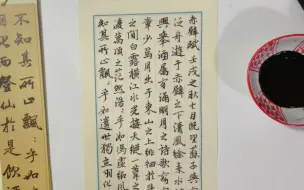 赤壁賦壬戌之秋七月既望蘇子與
泛舟游于赤壁之下清風徐來水
興舉酒屬客誦明月之詩歌窈
章少焉月出于東山之上徘徊於
之間白露橫江水光接天縱一葦之
凌萬頃之茫然浩浩乎如馮虛御風
知其所止飄飄乎如遺世獨立羽化
不知其所止飄飄乎如
而登仙於是飲酒